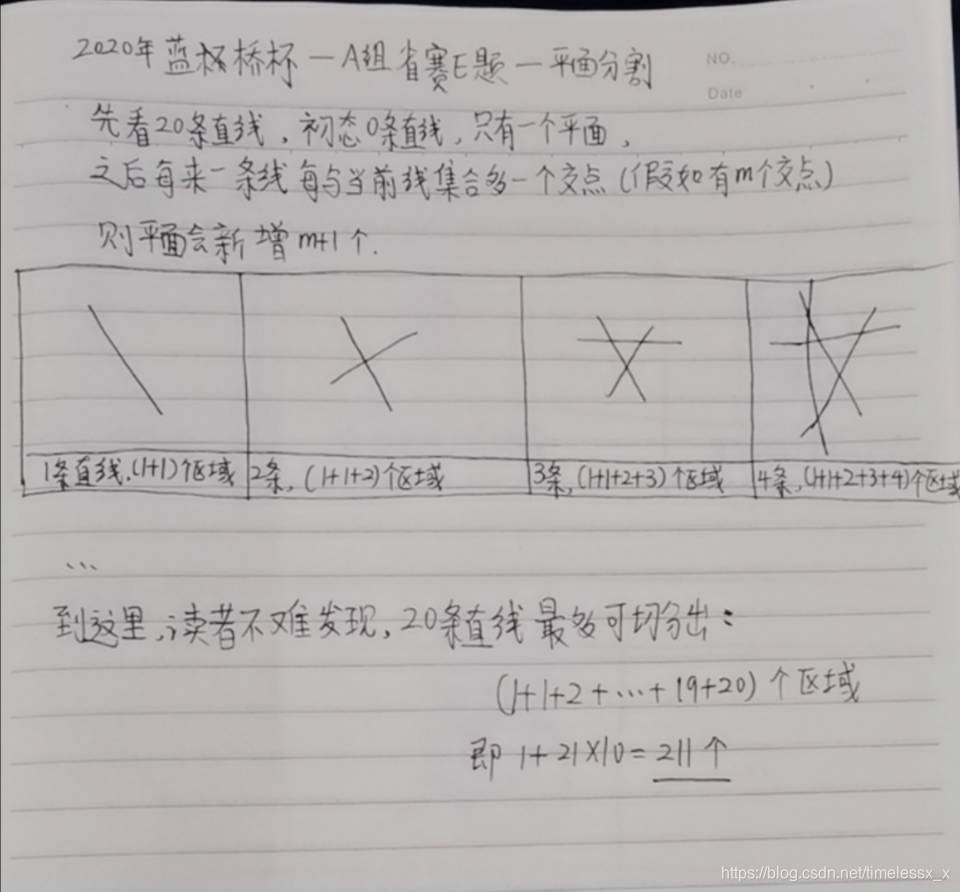 2020年蓝杯桥杯—A组省赛E题—平面分割
NO.
Date
先看20条直线，初态0条直线，只有一个平面，
之后每来一条线每与当前线集合多一个交点(假如有m个交点)
则平面会新增m+1个.
1条直线,(1+1)个区域
2条,(1+1+2)个区域
3条,(1+1+2+3)个区域
4条,(1+1+2+3+4)个区域
...
到这里,读者不难发现,20条直线最多可切分出:
(1+1+2+...+19+20)个区域
即 1+21×10=211个
https://blog.csdn.net/timelessx_x